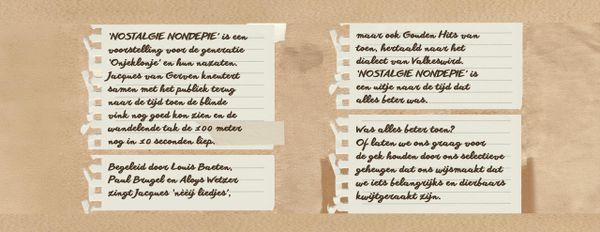 'NOSTALGIE NONDEPIE' is een
voorstelling voor de generatie
'Onjeklonje' en hun nazaten.
Jacques van Gerven kneutert
samen met het publiek terug
naar de tijd toen de blinde
vink nog goed kon zien en de
wandelende tak de 100 meter
nog in 10 seconden liep.
Begeleid door Louis Baeten,
Paul Brugel en Aloys Wetzer
zingt Jacques 'nèèij liedjes',
maar ook Gouden Hits van
toen, hertaald naar het
dialect van Valkeswird.
'NOSTALGIE NONDEPIE' is
een uitje naar de tijd dat
alles beter was.
Was alles beter toen?
Of laten we ons graag voor
de gek houden door ons selectieve
geheugen dat ons wijsmaakt dat
we iets belangrijks en dierbaars
kwijtgeraakt zijn.